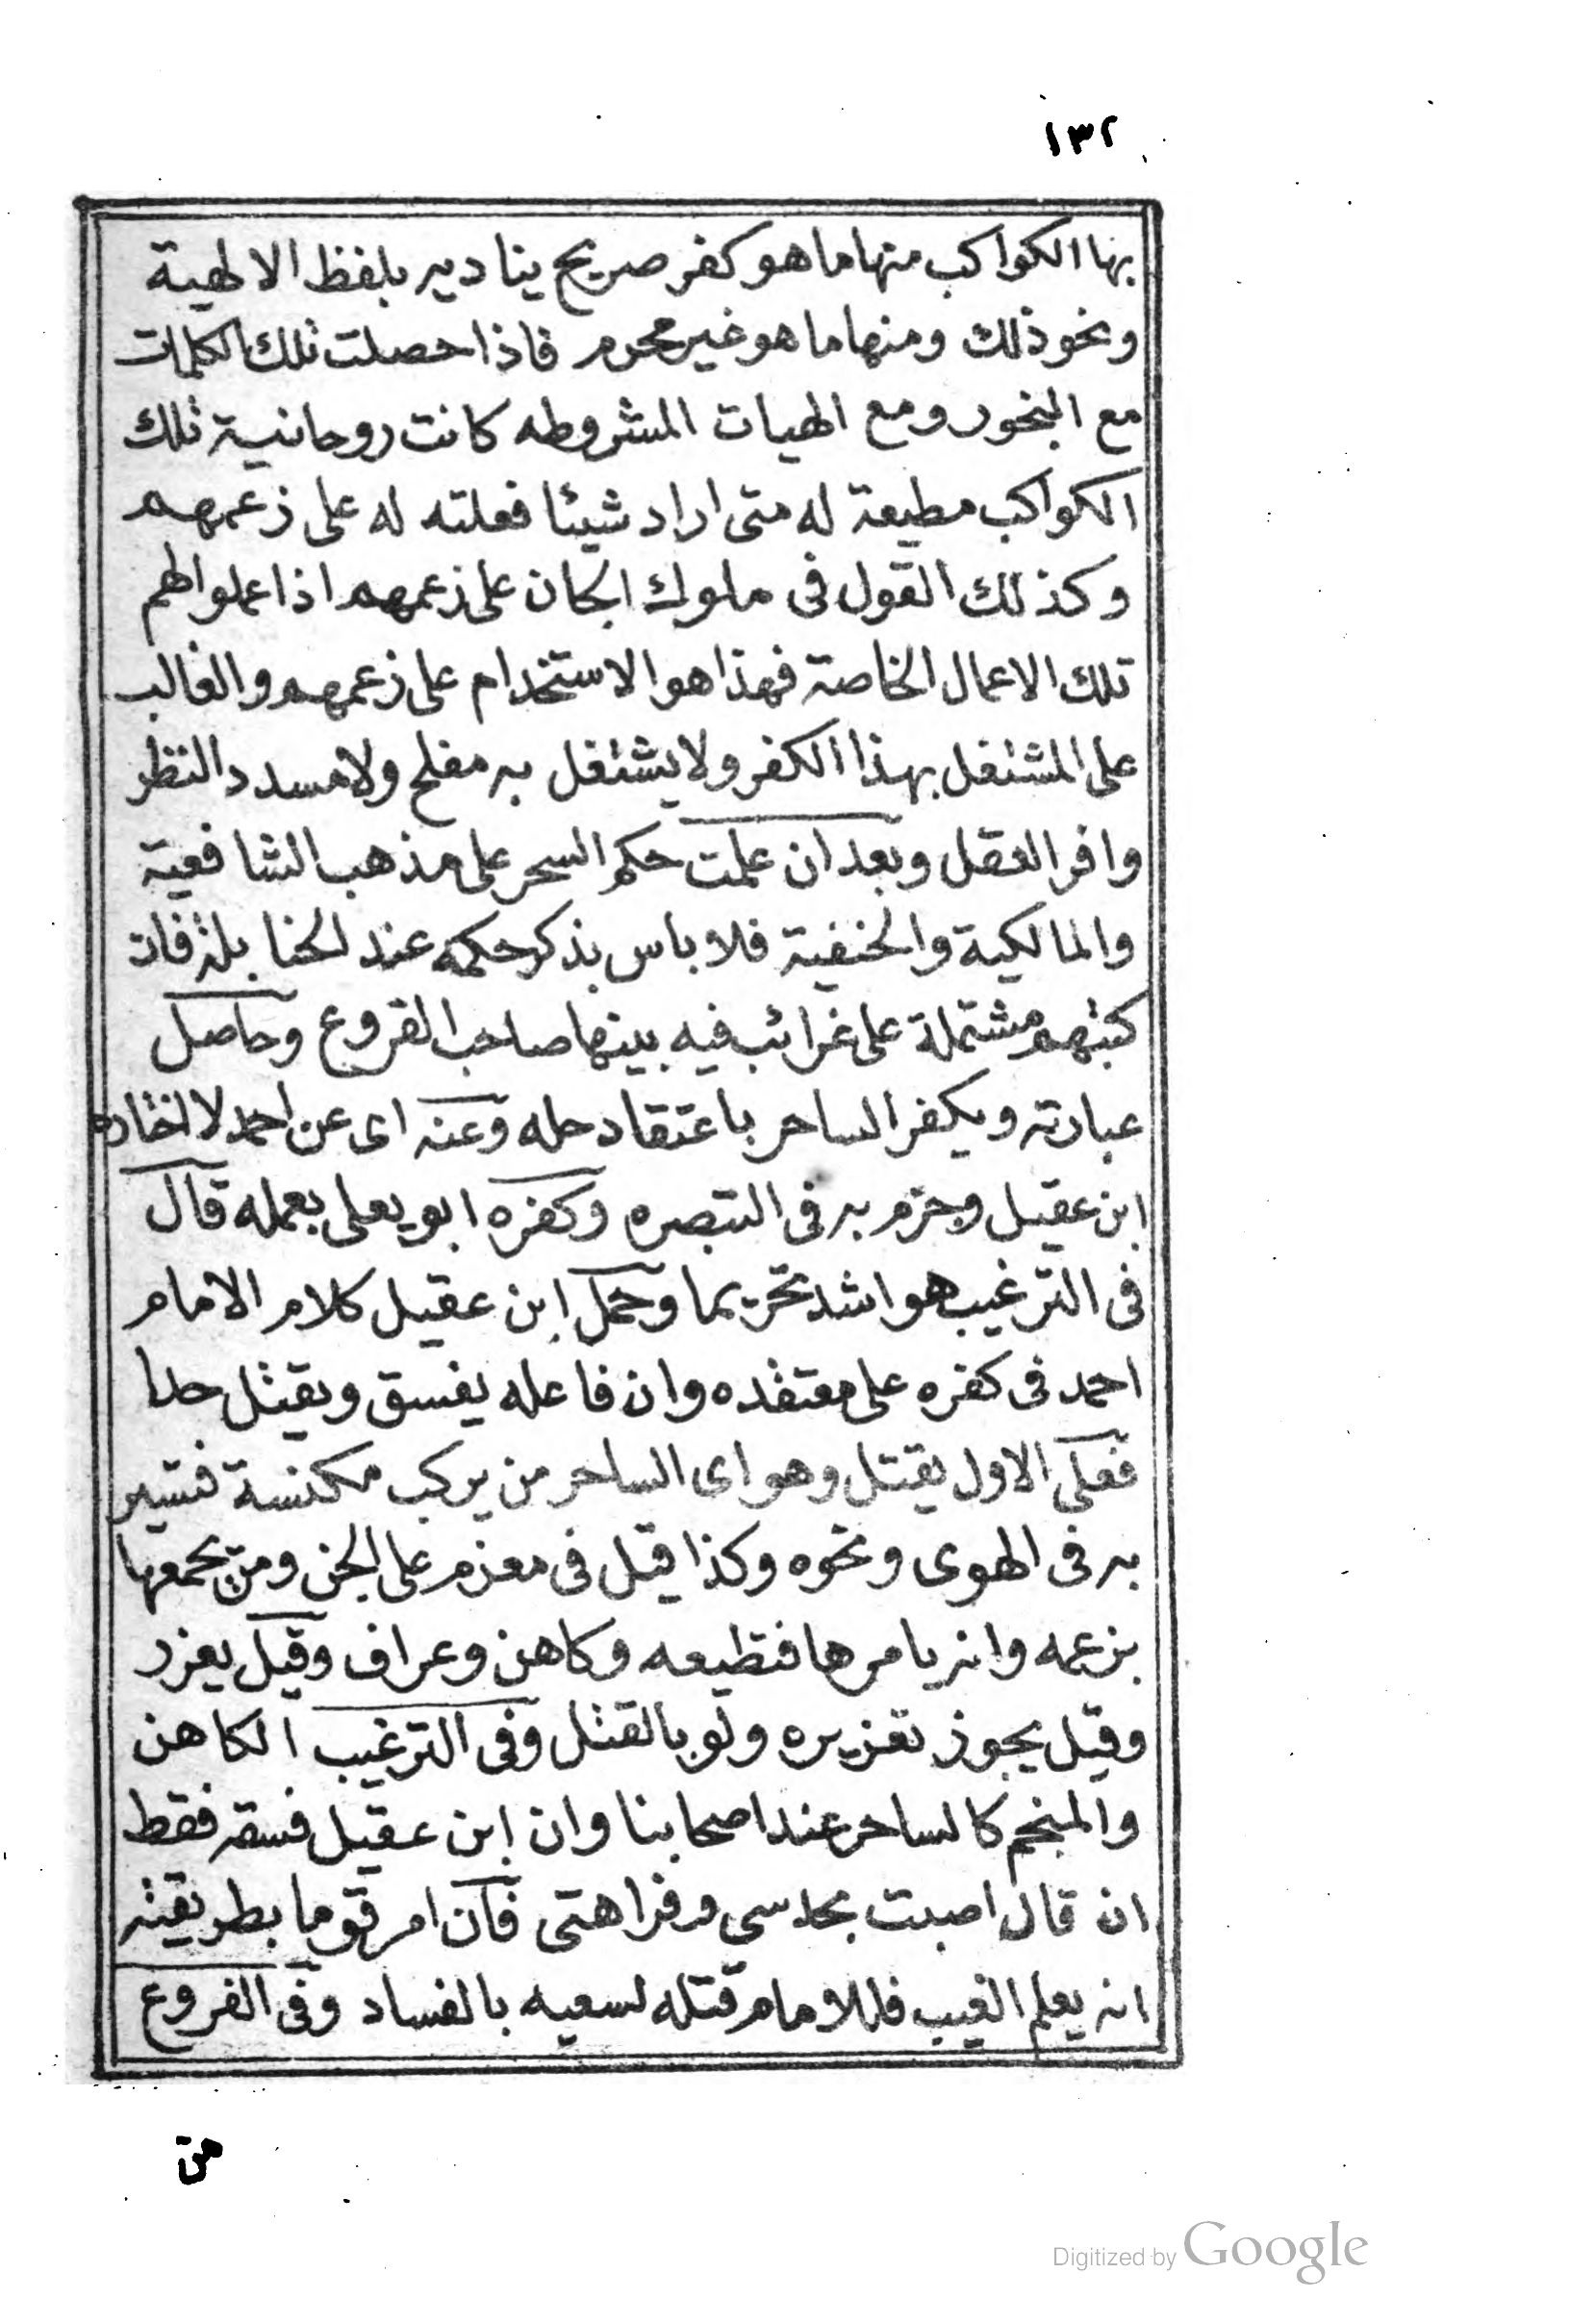 ١٣٢
بها الكواكب منها ما هو كفر صريح يناديه بلفظ الالهية
ونحو ذلك ومنها ما هو غير محرم فاذا حصلت تلك الكلمات
مع البخور ومع الهيات المشروطه كانت روحانية تلك
الكواكب مطيعة له متى اراد شيئا فعلته له على زعمهم
وكذلك القول فى ملوك الجان على زعمهم اذا عملوا لهم
تلك الاعمال الخاصة فهذا هو الاستخدام على زعمهم والغالب
على المشتغل بهذا الكفر ولا يشتغل به مفلح ولا مسدد النظر
وافر العقل وبعد ان علمت حكم السحر على مذهب الشافعية
والمالكية والحنفية فلا باس بذكر حكمه عند الحنابلة فان
كتبهم مشتملة على غرائب فيه بينها صاحب الفروع وحاصل
عبارته ويكفر الساحر باعتقاد حله وعنه اى عن احمد لا اختاره
ابن عقيل وجزم به فى التبصره وكفره ابو يعلى بعمله قال
فى الترغيب هو اشد تحريما وحمل ابن عقيل كلام الامام
احمد فى كفره على معتقده وان فاعله يفسق ويقتل حدا
فعلى الاول يقتل وهو اى الساحر من يركب مكنسة فتسير
به فى الهوى ونحوه وكذا قيل فى معزم على الجن ومن يجمعها
بزعمه وانه يامرها فتطيعه وكاهن وعراف وقيل يعزر
وقيل يجوز تعزيره ولو بالقتل وفى الترغيب الكاهن
والمنجم كالساحر عند اصحابنا وان ابن عقيل فسقه فقط
ان قال اصبت بحدسى وفراهتى فان امر قوما بطريقته
انه يعلم الغيب فللامام قتله لسعيه بالفساد وفى الفروع
من
Digitized by Google